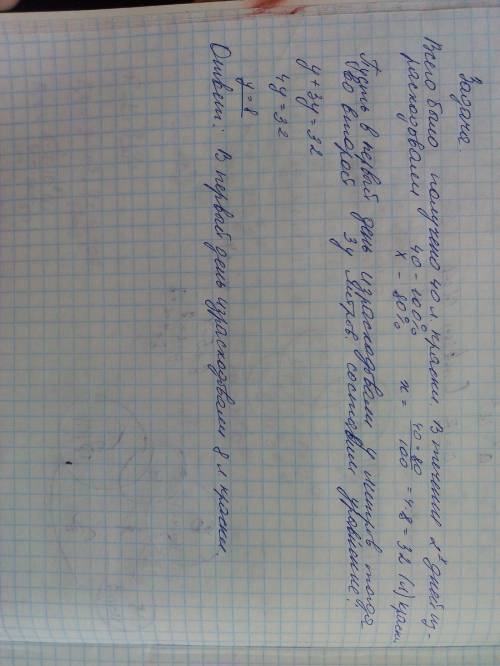 Задача.
Всего было получено 40 л краски. В течении 2х дней из-
расходовали 40 - 100% x = 40 · 80 / 100 = 4·8 = 32 (л) краск.
x - 80%
Пусть в первый день израсходовали y литров тогда
во второй 3y литров. составим уравнение:
y + 3y = 32
4y = 32
y = 8
Ответ: В первый день израсходовали 8 л краски.